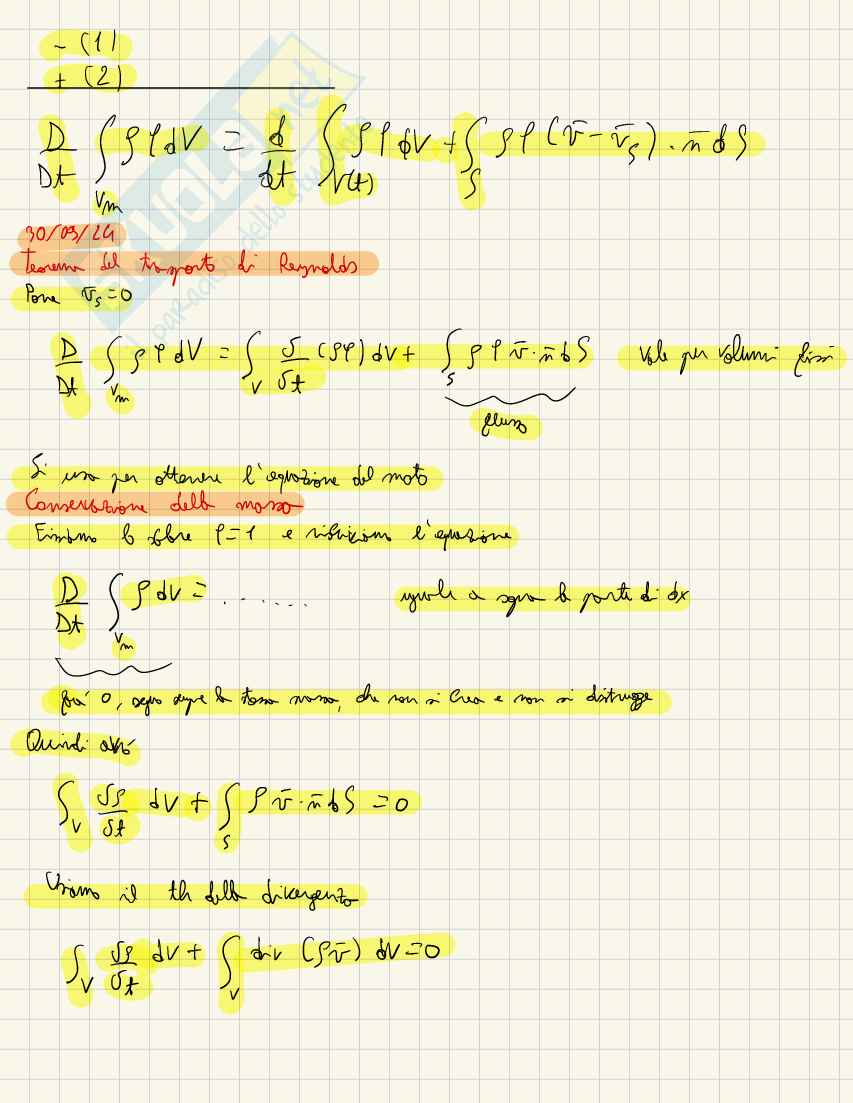 - (1)
+ (2)
D/Dt ∫_Vm ρφdV = d/dt ∫_V(t) ρφ dV + ∫_S ρφ(v̄ - v̄_S)·n̄ dS
30/09/24
Teorema del trasporto di Reynolds
Pone v̄_S = 0
D/Dt ∫_Vm ρφdV = ∫_V δ/δt (ρφ) dV + ∫_S ρφ v̄·n̄ dS Vale per volumi fissi
flusso
Si usa per ottenere l'equazione del moto
Conservazione della massa
φ=1 e l'equazione
D/Dt ∫_Vm ρdV = ........ uguale a sopra la parte di dx
0, sempre la massa, che non si crea e non si distrugge
Quindi avrò
∫_V δρ/δt dV + ∫_S ρ v̄·n̄ dS = 0
Usiamo il th della divergenza
∫_V δρ/δt dV + ∫_V div (ρv̄) dV = 0